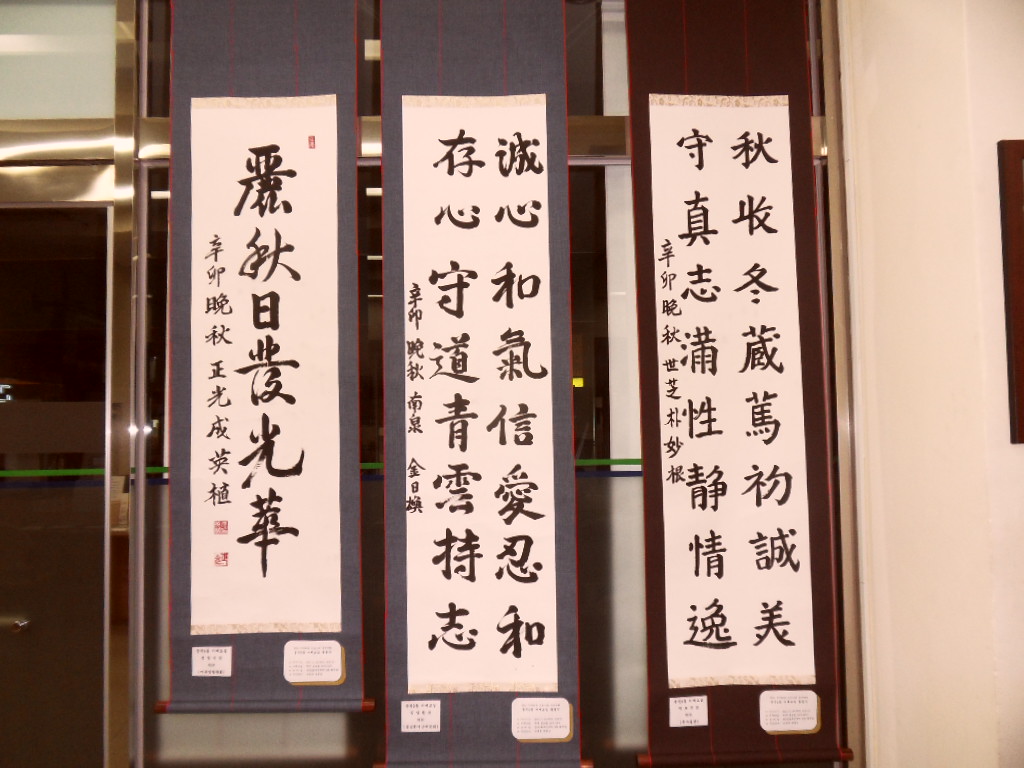 秋收冬蔵篤初誠美
守真志滿性静情逸
辛卯晩秋 世芝 朴妙根
誠心和氣信愛忍和
存心守道青雲持志
辛卯 晩秋 南泉 金日煥
麗秋日發光華
辛卯晩秋 正光 成英植